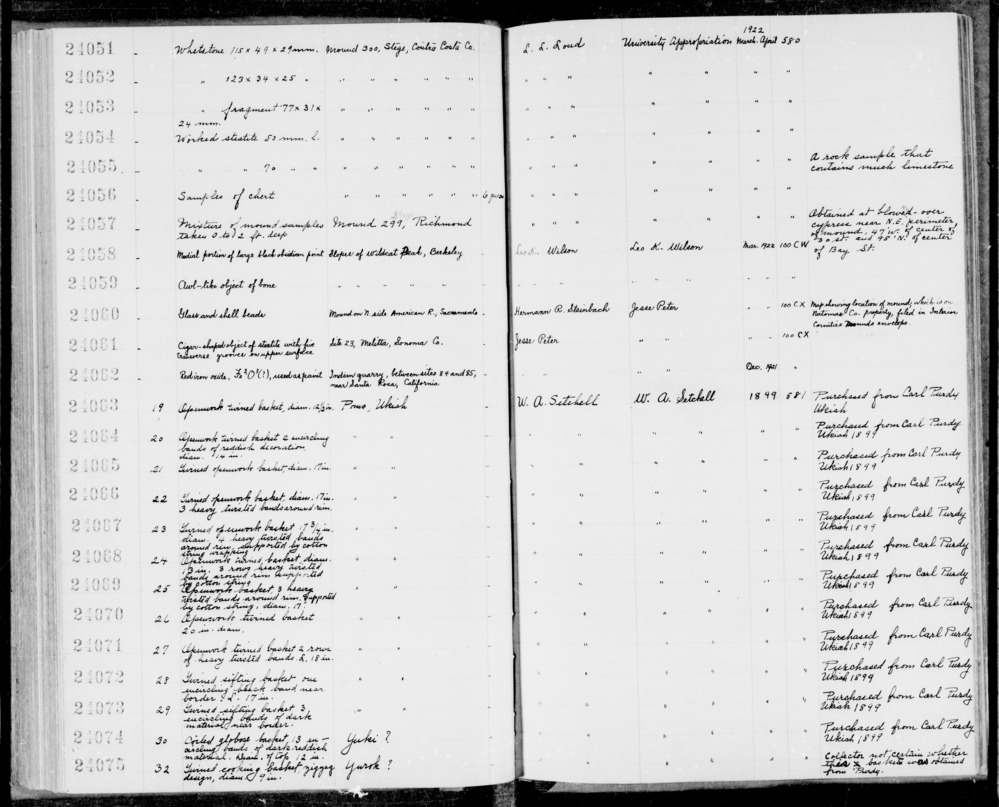 1922
24051 - Whetstone 115 x 49 x 29 mm. Mound 300, Stege, Contra Costa Co. - L. L. Loud University Appropriation March-April 580
24052 - " 123 x 34 x 25 " " " " " " - " " " " " " "
24053 - " fragment 77 x 31 x " " " " " - " " " " " " "
24 mm.
24054 - Worked steatite 50 mm. l. " " " " " - " " " " " " "
24055 - " " 70 " " " " " " " - " " " " " " " A rock sample that
contains much limestone
24056 - Samples of chert " " " " " " " " " " " "
24057 - Mixture of mound samples Mound 299, Richmond - " " " " " " " Obtained at blowed-over
taken 0 to 2 ft. deep
cypress near N.E. perimeter
of mound, 47' W. of center of
St. and 95' N. of center
of Bay St.
24058 - Medial portion of large black obsidian point Slopes of Wildcat Peak, Berkeley - Leo K. Wilson Leo K. Wilson Mar. 1922 100 CW
24059 - Awl-like object of bone " " "
24060 - Glass and shell beads Mound on N. side American R., Sacramento - Hermann R. Steinbach Jesse Peter " " 100 CX Map showing location of mound, which is on
Natomas Co. property, filed in Interior
Counties Mounds envelope.
24061 - Cigar-shaped object of steatite with five Site 23, Melitta, Sonoma Co. - Jesse Peter " " " " 100 CX
transverse grooves on upper surface
24062 - Red iron oxide, used as paint Indian quarry, between sites 84 and 85, - " " " " Dec. 1921 "
near Santa Rosa, California
24063 19 Openwork twined basket, diam. in. Pomo, Ukiah - W. A. Setchell W. A. Setchell 1899 581 Purchased from Carl Purdy
Ukiah
24064 20 Openwork twined basket 2 encircling " " - " " " " Purchased from Carl Purdy
bands of reddish decoration, Ukiah 1899
diam. 14 in.
24065 21 Twined openwork basket, diam. 17 in. " " - " " " " Purchased from Carl Purdy
Ukiah 1899
24066 22 Twined openwork basket, diam. 17 in. " " - " " " " Purchased from Carl Purdy
3 heavy twisted bands around rim. Ukiah, 1899
24067 23 Twined openwork basket 17 3/4 in. " " - " " " " Purchased from Carl Purdy
diam. 4 heavy twisted bands Ukiah, 1899
around rim, supported by cotton
string wrapping
24068 24 Openwork twined basket, diam. " " - " " " " Purchased from Carl Purdy
13 in. 3 rows heavy twisted Ukiah, 1899
bands around rim supported
by cotton string
24069 25 Openwork basket 3 heavy " " - " " " " Purchased from Carl Purdy
twisted bands around rim, supported Ukiah 1899
by cotton string. diam. 17.
24070 26 Openwork twined basket " " - " " " " Purchased from Carl Purdy
20 in. diam. Ukiah 1899
24071 27 Openwork twined basket 2 rows " " - " " " " Purchased from Carl Purdy
of heavy twisted bands. D. 18 in. Ukiah 1899
24072 28 Twined sifting basket one " " - " " " " Purchased from Carl Purdy
encircling black band near Ukiah, 1899
border. D. 17 in.
24073 29 Twined sifting basket 3 " " - " " " " Purchased from Carl Purdy
encircling bands of dark Ukiah 1899
material near border.
24074 30 Coiled globose basket, 13 en- Yuki? - " " " " Purchased from Carl Purdy
circling bands of dark reddish Ukiah, 1899
material. Diam. of top 12 in.
24075 32 Twined cooking basket zigzag Yurok? - " " " " Collector not certain whether
design, diam. 9 in. baskets was obtained
from Purdy.